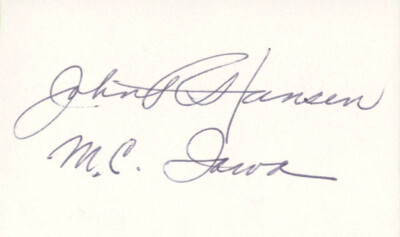 John R Hansen
M.C. Iowa